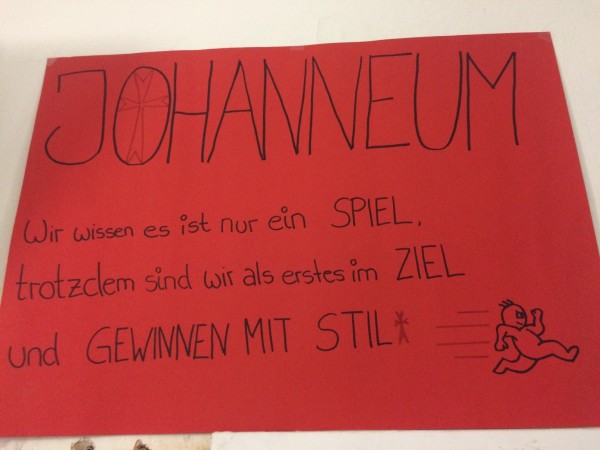 JOHANNEUM
Wir wissen es ist nur ein SPIEL,
trotzdem sind wir als erstes im ZIEL
und GEWINNEN MIT STIL